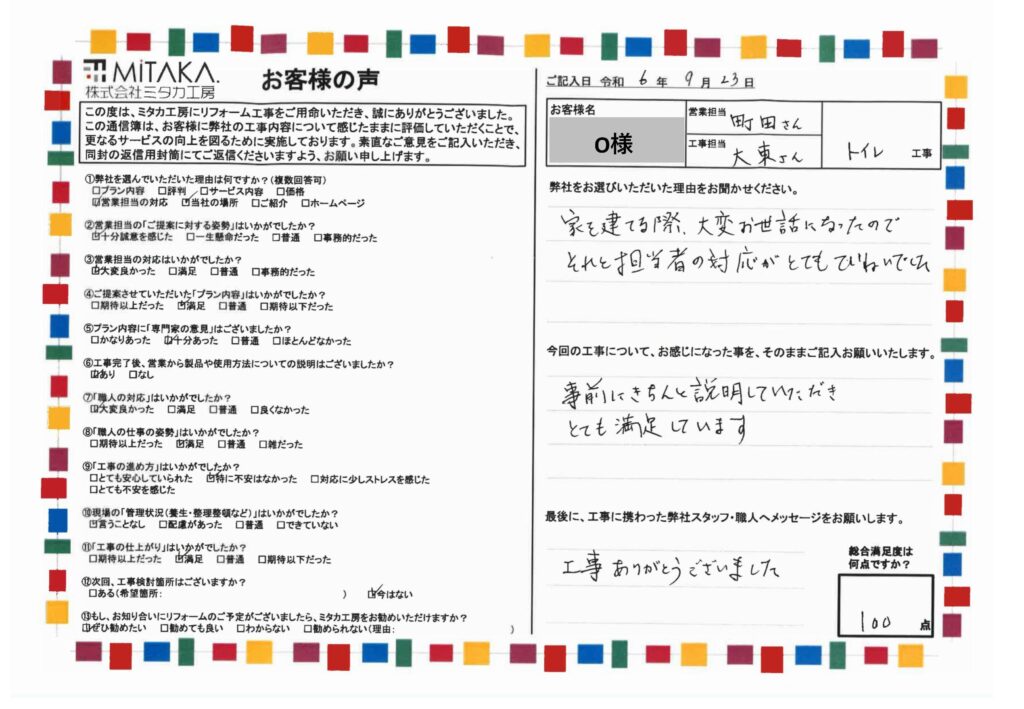 MiTAKA.
株式会社ミタカ工房
お客様の声
この度は、ミタカ工房にリフォーム工事をご用命いただき、誠にありがとうございました。
この通信簿は、お客様に弊社の工事内容について感じたままに評価していただくことで、
更なるサービスの向上を図るために実施しております。素直なご意見をご記入いただき、
同封の返信用封筒にてご返信くださいますよう、お願い申し上げます。
①弊社を選んでいただいた理由は何ですか？(複数回答可)
□プラン内容 □評判 □サービス内容 □価格
☑営業担当の対応 ☑当社の場所 □ご紹介 □ホームページ
②営業担当の「ご提案に対する姿勢」はいかがでしたか？
☑十分誠意を感じた □一生懸命だった □普通 □事務的だった
③営業担当の対応はいかがでしたか？
☑大変良かった □満足 □普通 □事務的だった
④ご提案させていただいた「プラン内容」はいかがでしたか？
□期待以上だった ☑満足 □普通 □期待以下だった
⑤プラン内容に「専門家の意見」はございましたか？
□かなりあった ☑十分あった □普通 □ほとんどなかった
⑥工事完了後、営業から製品や使用方法についての説明はございましたか？
☑あり □なし
⑦「職人の対応」はいかがでしたか？
☑大変良かった □満足 □普通 □良くなかった
⑧「職人の仕事の姿勢」はいかがでしたか？
□期待以上だった ☑満足 □普通 □雑だった
⑨「工事の進め方」はいかがでしたか？
□とても安心していられた ☑特に不安はなかった □対応に少しストレスを感じた
□とても不安を感じた
⑩現場の「管理状況(養生・整理整頓など)」はいかがでしたか？
☑言うことなし □配慮があった □普通 □できていない
⑪「工事の仕上がり」はいかがでしたか？
□期待以上だった ☑満足 □普通 □期待以下だった
⑫次回、工事検討箇所はございますか？
□ある(希望箇所: ) ☑今はない
⑬もし、お知り合いにリフォームのご予定がございましたら、ミタカ工房をお勧めいただけますか？
☑ぜひ勧めたい □勧めても良い □わからない □勧められない(理由: )
ご記入日 令和 6 年 9 月 23 日
お客様名
O様
営業担当 町田さん
工事担当 大東さん
トイレ 工事
弊社をお選びいただいた理由をお聞かせください。
家を建てる際、大変お世話になったので
それと担当者の対応がとてもていねいでした
今回の工事について、お感じになった事を、そのままご記入お願いいたします。
事前にきちんと説明していただき
とても満足しています
最後に、工事に携わった弊社スタッフ・職人へメッセージをお願いします。
工事ありがとうございました
総合満足度は
何点ですか？
100 点